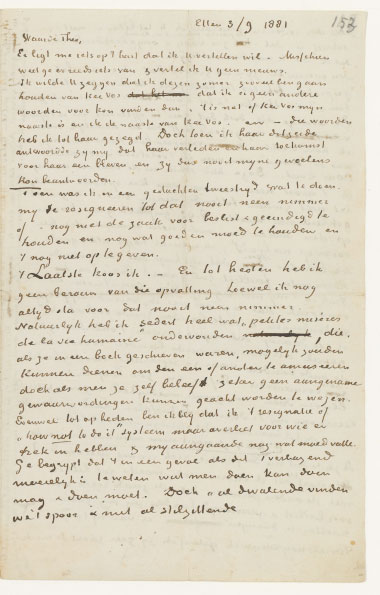 Etten 3/9 1881
153
Waarde Theo,
Er ligt me iets op 't hart dat ik U vertellen wil. Misschien
weet ge er reeds iets van & vertel ik U geen nieuws.
Ik wilde U zeggen dat ik dezen zomer zooveel ben gaan
houden van Kee Vos dat ik er geen andere
woorden voor kon vinden dan "'t is net of Kee Vos mijn
naaste is en ik de naaste van Kee Vos" en – die woorden
heb ik tot haar gezegd. Doch toen ik haar dit zeide
antwoordde zy my dat haar verleden en haar toekomst
voor haar een bleven en zy dus nooit myne gevoelens
kon beantwoorden.
Toen was ik in een gedachten tweestryd wat te doen.
my te resigneeren tot dat nooit neen nimmer
of nog niet de zaak voor beslist & geeindigd te
houden en nog wat goeden moed te houden en
't nog niet op te geven.
't Laatste koos ik. – En tot heden heb ik
geen berouw van die opvatting hoewel ik nog
altyd sta voor dat nooit neen nimmer.
Natuurlyk heb ik sedert heel wat "petites misères
de la vie humaine" ondervonden die,
als ze in een boek geschreven waren, mogelyk zouden
kunnen dienen om den een of ander te amuseeren
doch als men ze zelf beleeft zeker geen aangename
gewaarwordingen kunnen geacht worden te wezen.
Evenwel tot op heden ben ik bly dat ik 't resignatie of
"how not to do it" systeem maar overliet voor wie er
trek in hebben & my aangaande nog wat moed vatte.
Ge begrypt dat 't in een geval als dit verbazend
moeielyk is te weten wat men doen kan doen
mag & doen moet. Doch "al dwalende vinden
we 't spoor" & niet al stilzittende